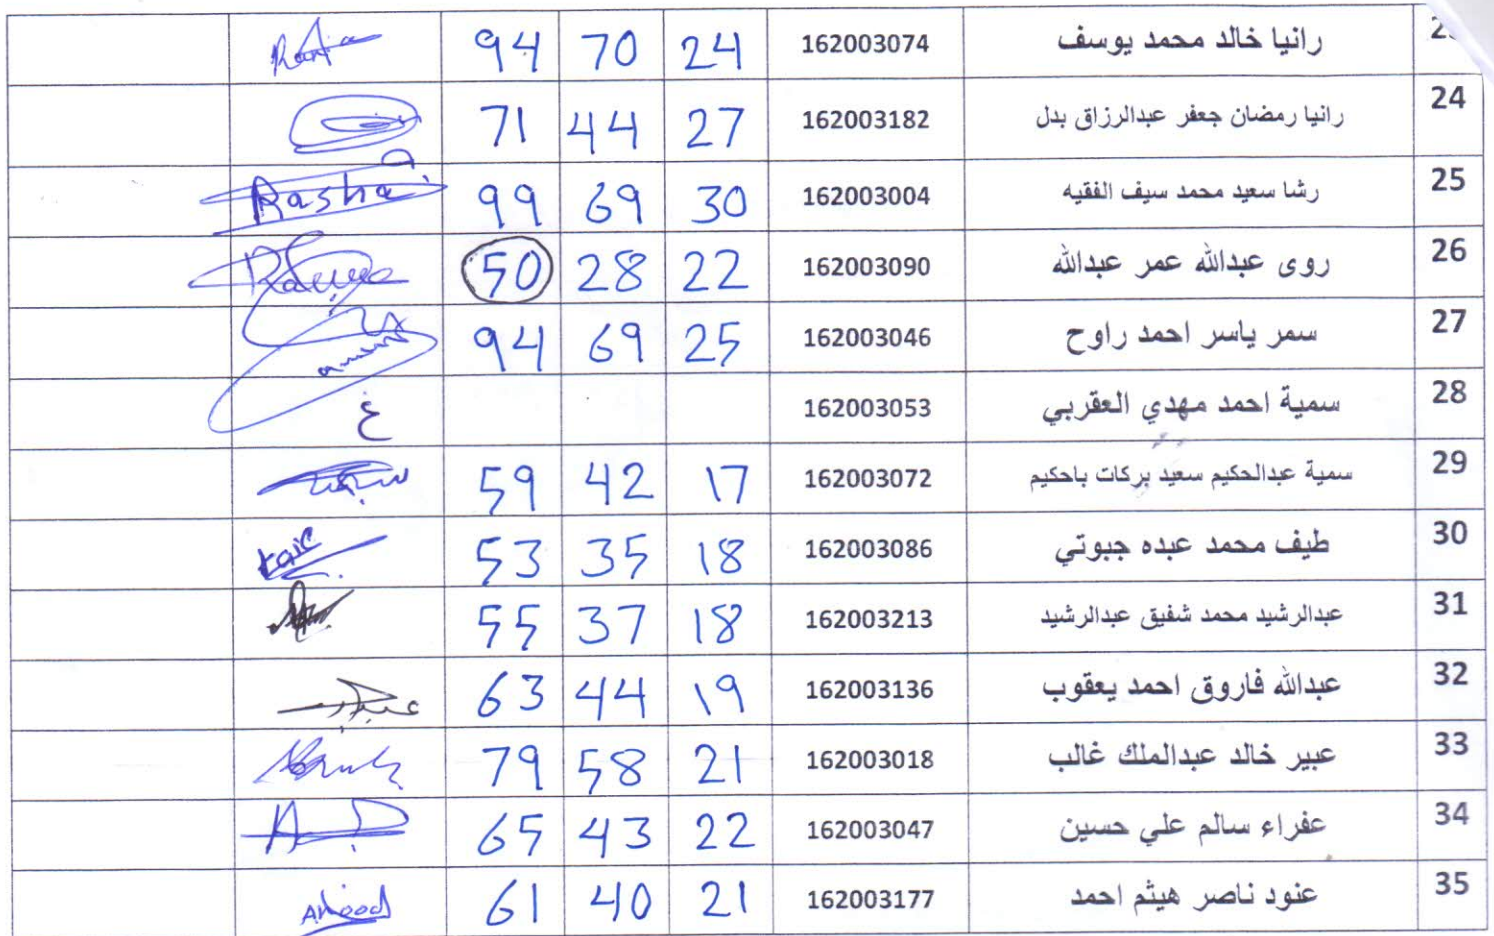 رانيا خالد محمد يوسف 162003074 24 70 94
24 رانيا رمضان جعفر عبدالرزاق بدل 162003182 27 44 71
25 رشا سعيد محمد سيف الفقيه 162003004 30 69 99 Rasha
26 روى عبدالله عمر عبدالله 162003090 22 28 50
27 سمر ياسر احمد راوح 162003046 25 69 94
28 سمية احمد مهدي العقربي 162003053 غ
29 سمية عبدالحكيم سعيد بركات باحكيم 162003072 17 42 59
30 طيف محمد عبده جبوتي 162003086 18 35 53
31 عبدالرشيد محمد شفيق عبدالرشيد 162003213 18 37 55
32 عبدالله فاروق احمد يعقوب 162003136 19 44 63
33 عبير خالد عبدالملك غالب 162003018 21 58 79
34 عفراء سالم علي حسين 162003047 22 43 65
35 عنود ناصر هيثم احمد 162003177 21 40 61